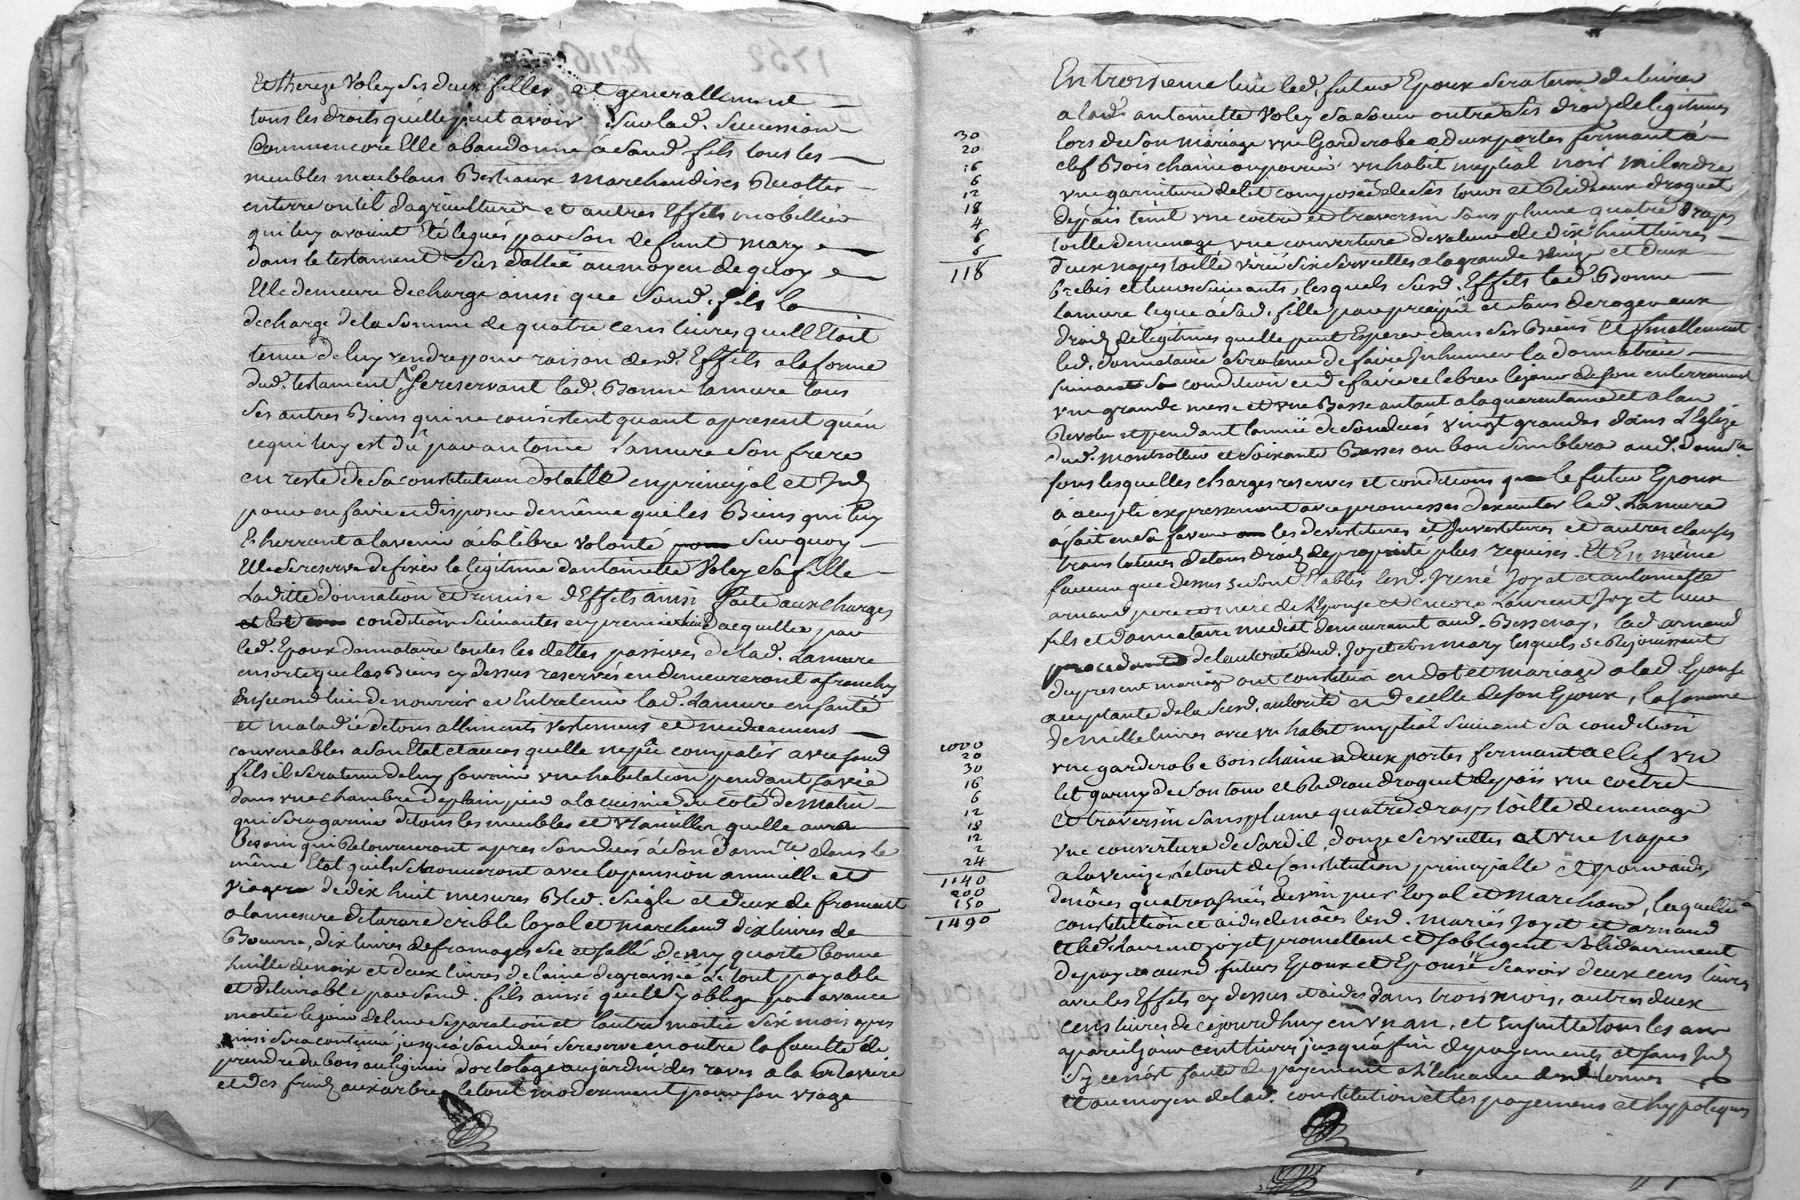 Et thereze Voley ses deux filles et generallement
tous les droits quelle peut avoir Sur lad. Succession
Comme encore Elle abandonne a Sond. fils tous les
meubles meublans Bestiaux marchandises Recoltes
enterre outil dagriculture et autres Effets mobilliers
qui luy avoient Eté legués par Son defunt mary
dans le testament Sus datté au moyen de quoy
Elle demeure dechargé ainsi que Sond. fils la
decharge de la Somme de quatre cens livres quell Etoit
tenue de luy rendre pour raison desd. Effets a la forme
dud. testament Se reservant lad. Bonne Lamure tous
Ses autres Biens qui ne consistent quant apresent quen
ce qui luy est dû par antoine Lamure Son frere
en reste de Sa constitution dotalle en principal et
pour en faire et disposer de même que les Biens qui luy
Eherront alavenir a Sa libre Volonté Sur quoy
Elle Se reserve de fixer la legitime dantoinette Voley Sa fille
Laditte donnation et remise dEffets ainsi faite aux charges
et conditions Suivantes en premier lieu dacquitter par
led. Epoux donnataire toutes les dettes passives de lad. Lamure
en sorte que les Biens cy dessus reservés en demeureront afranchy
En second lieu de nourrir et Entretenir lad. Lamure en Santé
et maladie de tous alliments vestemens et medicamens
convenables a Son Etat et au cas quelle ne put compatir avec Sond
fils il Sera tenu de luy fournir une habitation pendant Sa vie
dans une chambre de plain pied a la cuisine du coté de matin
qui Sera garnie de tous les meubles et quelle aura
Besoin qui Retourneront apres Son decés a Son dans le
même Etat quils Se trouveront avec la pension annuelle et
viagere de dix huit mesures Bled Seigle et deux de froment
a la mesure de tarare crible loyal et marchand dix livres de
Beurre, dix livres de fromages Sec et Sallé, demy quarte bonne
huille de noix et deux livres de laine degraissée Le tout payable
et delivrable par Sond. fils ainsi quil Sy oblige par avance
moitié le jour de leur Separation et lautre moitié Six mois apres
ainsi Sera continué jusqua Son decés Se reserve en outre la faculté de
prendre du bois au ligner dortolage au jardin des raves a la
et des fruits aux arbres le tout moderement pour Son usage
En troisieme lieu led. futur Epoux Sera tenu de livrer
a lad. antoinette Voley Sa Soeur outre Ses droits de legitimes
30
lors de Son mariage une Garderobe a deux portes fermant a
20
clef Bois chaine ou poirier un habit nuptial noir
16
une garniture de lit composée de Ses tour et Rideaux droguet
6
12
depais teint une coetre et traversin Sans plume quatre draps
18
4
toille de menage une couverture de valeur de dix huit livres
6
6
deux napes toille Six Serviettes a la grande et deux
118
brebis et leurs Suivants, lesquels Susd. Effets lad. Bonne
lamure legue a Sad. fille par preciput et Sans deroger aux
droits de legitimes quelle peut Esperer dans Ses Biens Et finallement
led. donnataire Sera tenu de faire Inhumer la donnatrice
Suivant Sa condition et de faire celebrer le jour de Son enterrement
une grande messe et une Basse autant a la quarantaine et a lan
Revolu et pendant lannée de Son decés vingt grandes dans LEglize
dud. montrottier et Soixante Basses ou bon Semblera aud. donn.re
Sous lesquelles charges reserves et conditions que le futur Epoux
a accepté expressement avec promesses dexecuter lad. Lamure
a fait en Sa faveur les devestitures et Investitures et autres clauses
translatives de tous droits de proprieté plus requises. Et En même
faveur que dessus Se Sont Etablis lesd. Joyet et antoinette
arnaud pere et mere de lEpouse et encore Laurent Joyet leur
fils et donnataire mediat demeurant aud. Bessenay, lad. arnaud
procedante de lautorité dud. Joyet Son mary lesquels Se Rejouissant
du present mariage ont constitué en dot et mariage a lad. Epouse
acceptante de la Susd. autorité et de celle de Son Epoux, la Somme
de mille livres avec un habit nuptial Suivant Sa condition
1000
20
une garderobe bois chaine a deux portes fermant a clef un
30
16
let garny de Son tour et Rideau droguet depais une coetre
6
12
et traversin Sans plume quatre draps toille de menage
18
12
une couverture de Sardil, douze Serviettes et une nape
2
24
a la venize le tout de Constitution principalle Et pour aides
1140
200
de nôces quatre asnées de vin pur loyal et marchand, laquelle
150
constitution et aides de nôces lesd. mariés Joyet et arnaud
1490
et led. Laurent Joyet promettent et Sobligent Solidairement
de payer auxd futurs Epoux et Epouse Scavoir deux cens livres
avec les Effets cy dessus et aides dans trois mois, autres deux
cens livres de cejourdhuy en un an, et ensuitte tous les ans
a pareil jour cent livres jusqua fin de payements et Sans
Sy ce nest faute de payement a lEcheance termes
et au moyen de lad. constitution et les payemens et hypoteques